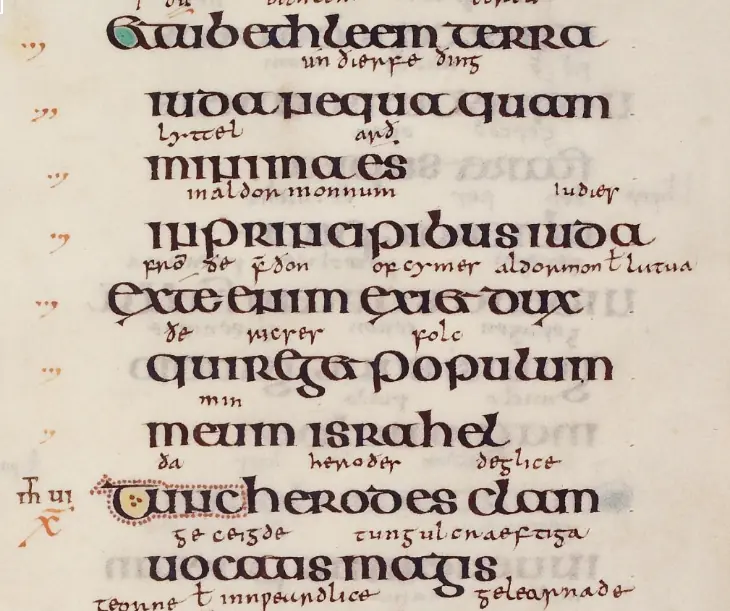 Et tu bethleem terra
un ðærfe ðing
iuda nequaquam
lyttel arð
minima es
in aldor monnum iudæs
in principibus iuda
from ðe f'ðon ofcymes aldormon ł latua
ex te enim exiet dux
ðe ricses folc
qui reget populum
min
meum israhel
ða herodes deglice
Tunc herodes clam
ge ceigde tungulcræftiga
uocatis magis
georne ł innueardlice geleornade